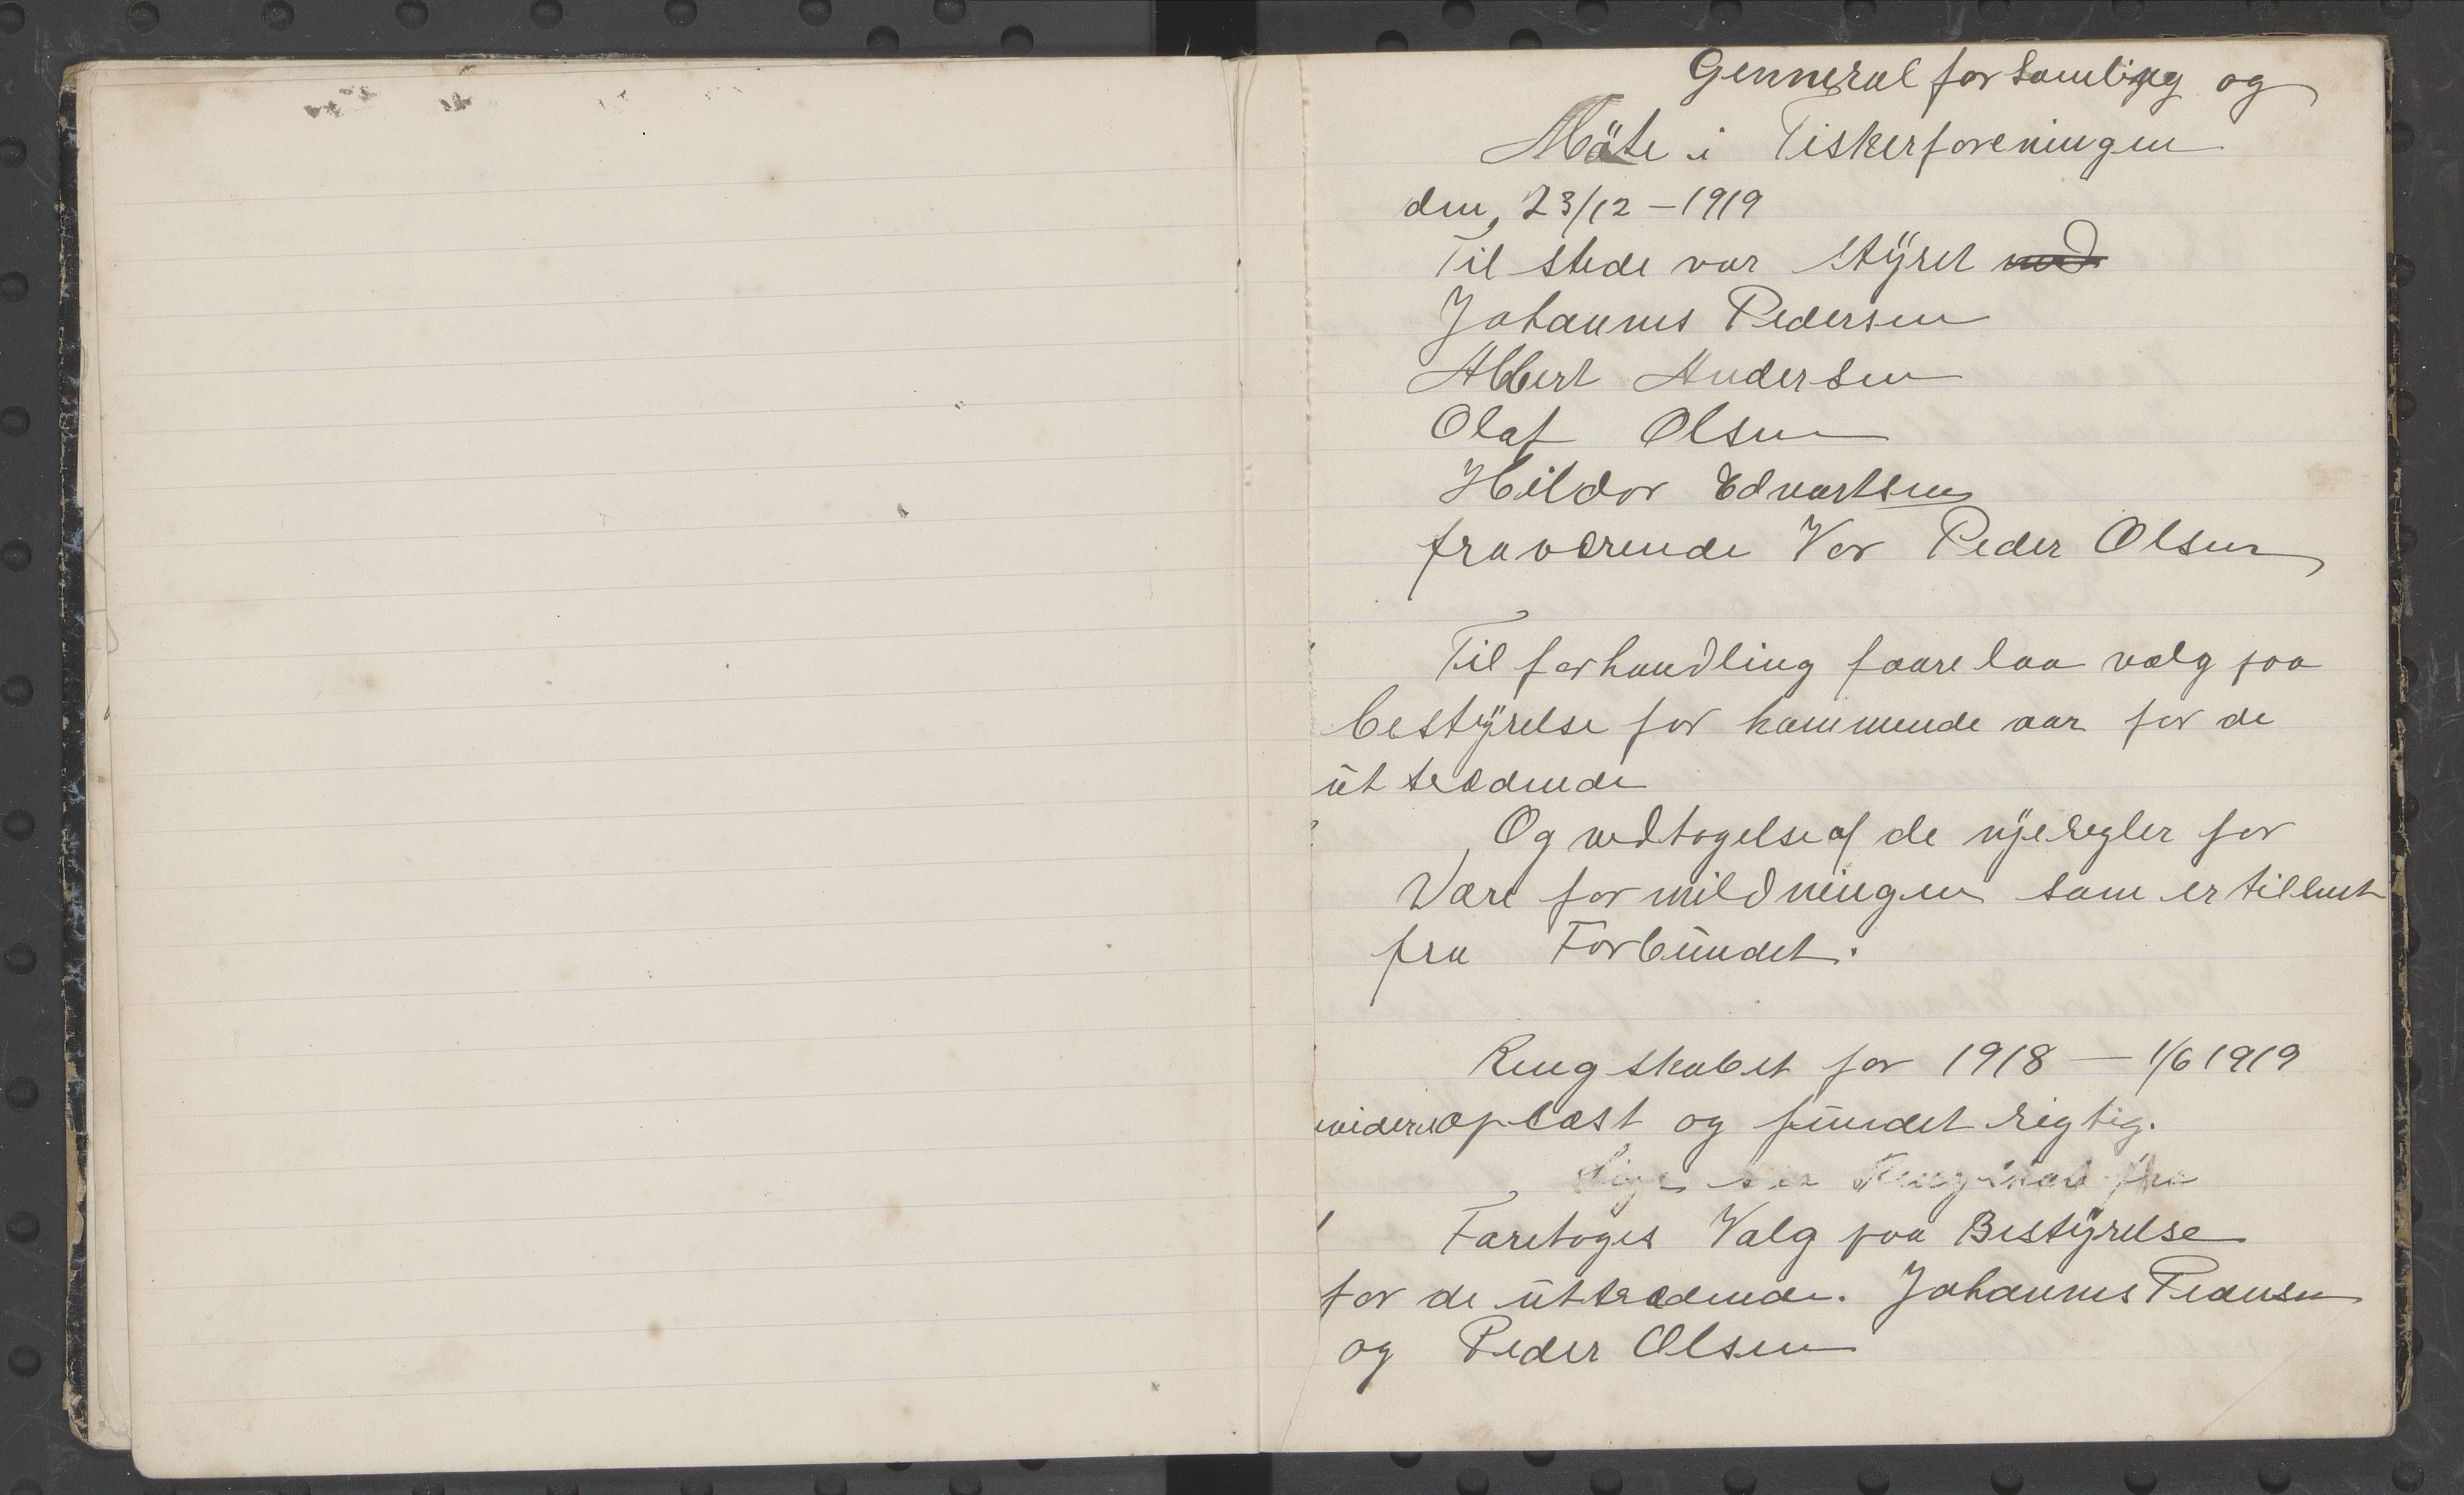 Genneral for samling og
Möte i Fiskerforeningen
den, 23/12 - 1919
Til stede var styret med
Johannes Pedersen
Albert Andersen
Olaf Olsen
Hildor Edvartsen
fraværende Var Peder Olsen
Til forhandling faarelaa valg paa
bestyrelse for kommende aar for de
ut trædende
Og vedtagelse af de nye regler for
Vare formildningen som er tilsent
fra Forbundet.
Rengskabet for 1918 — 1/6 1919
oplæst og fundet rigtig.
Rengskab fra
Foretoges Valg paa Bestyrelse
for de uttrædende. Johannes Pedersen
og Peder Olsen